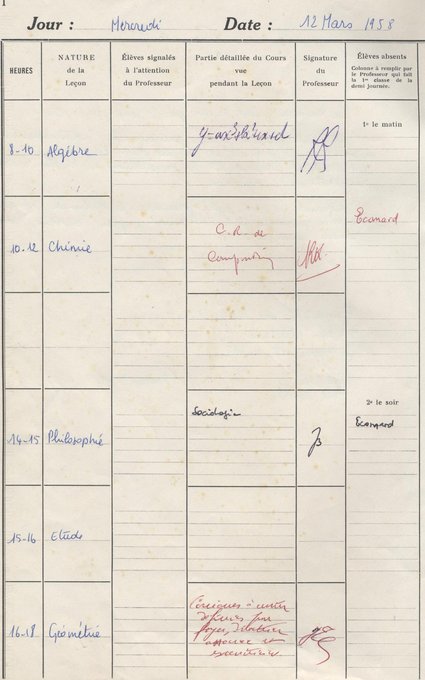 1
Jour : Mercredi Date : 12 Mars 1958
HEURES
NATURE
de la
Leçon
Élèves signalés
à l'attention
du Professeur
Partie détaillée du Cours
vue
pendant la Leçon
Signature
du
Professeur
Élèves absents
Colonne à remplir par
le Professeur qui fait
la 1re classe de la
demi journée.
1e le matin
8-10 Algèbre
10-12 Chimie C.R. de
Ecomard
2e le soir
14-15 Philosophie Sociologie Ecomard
15-16 Etude
16-18 Géométrie Coniques à centre
définies par
foyer, directrice
et excentricité.